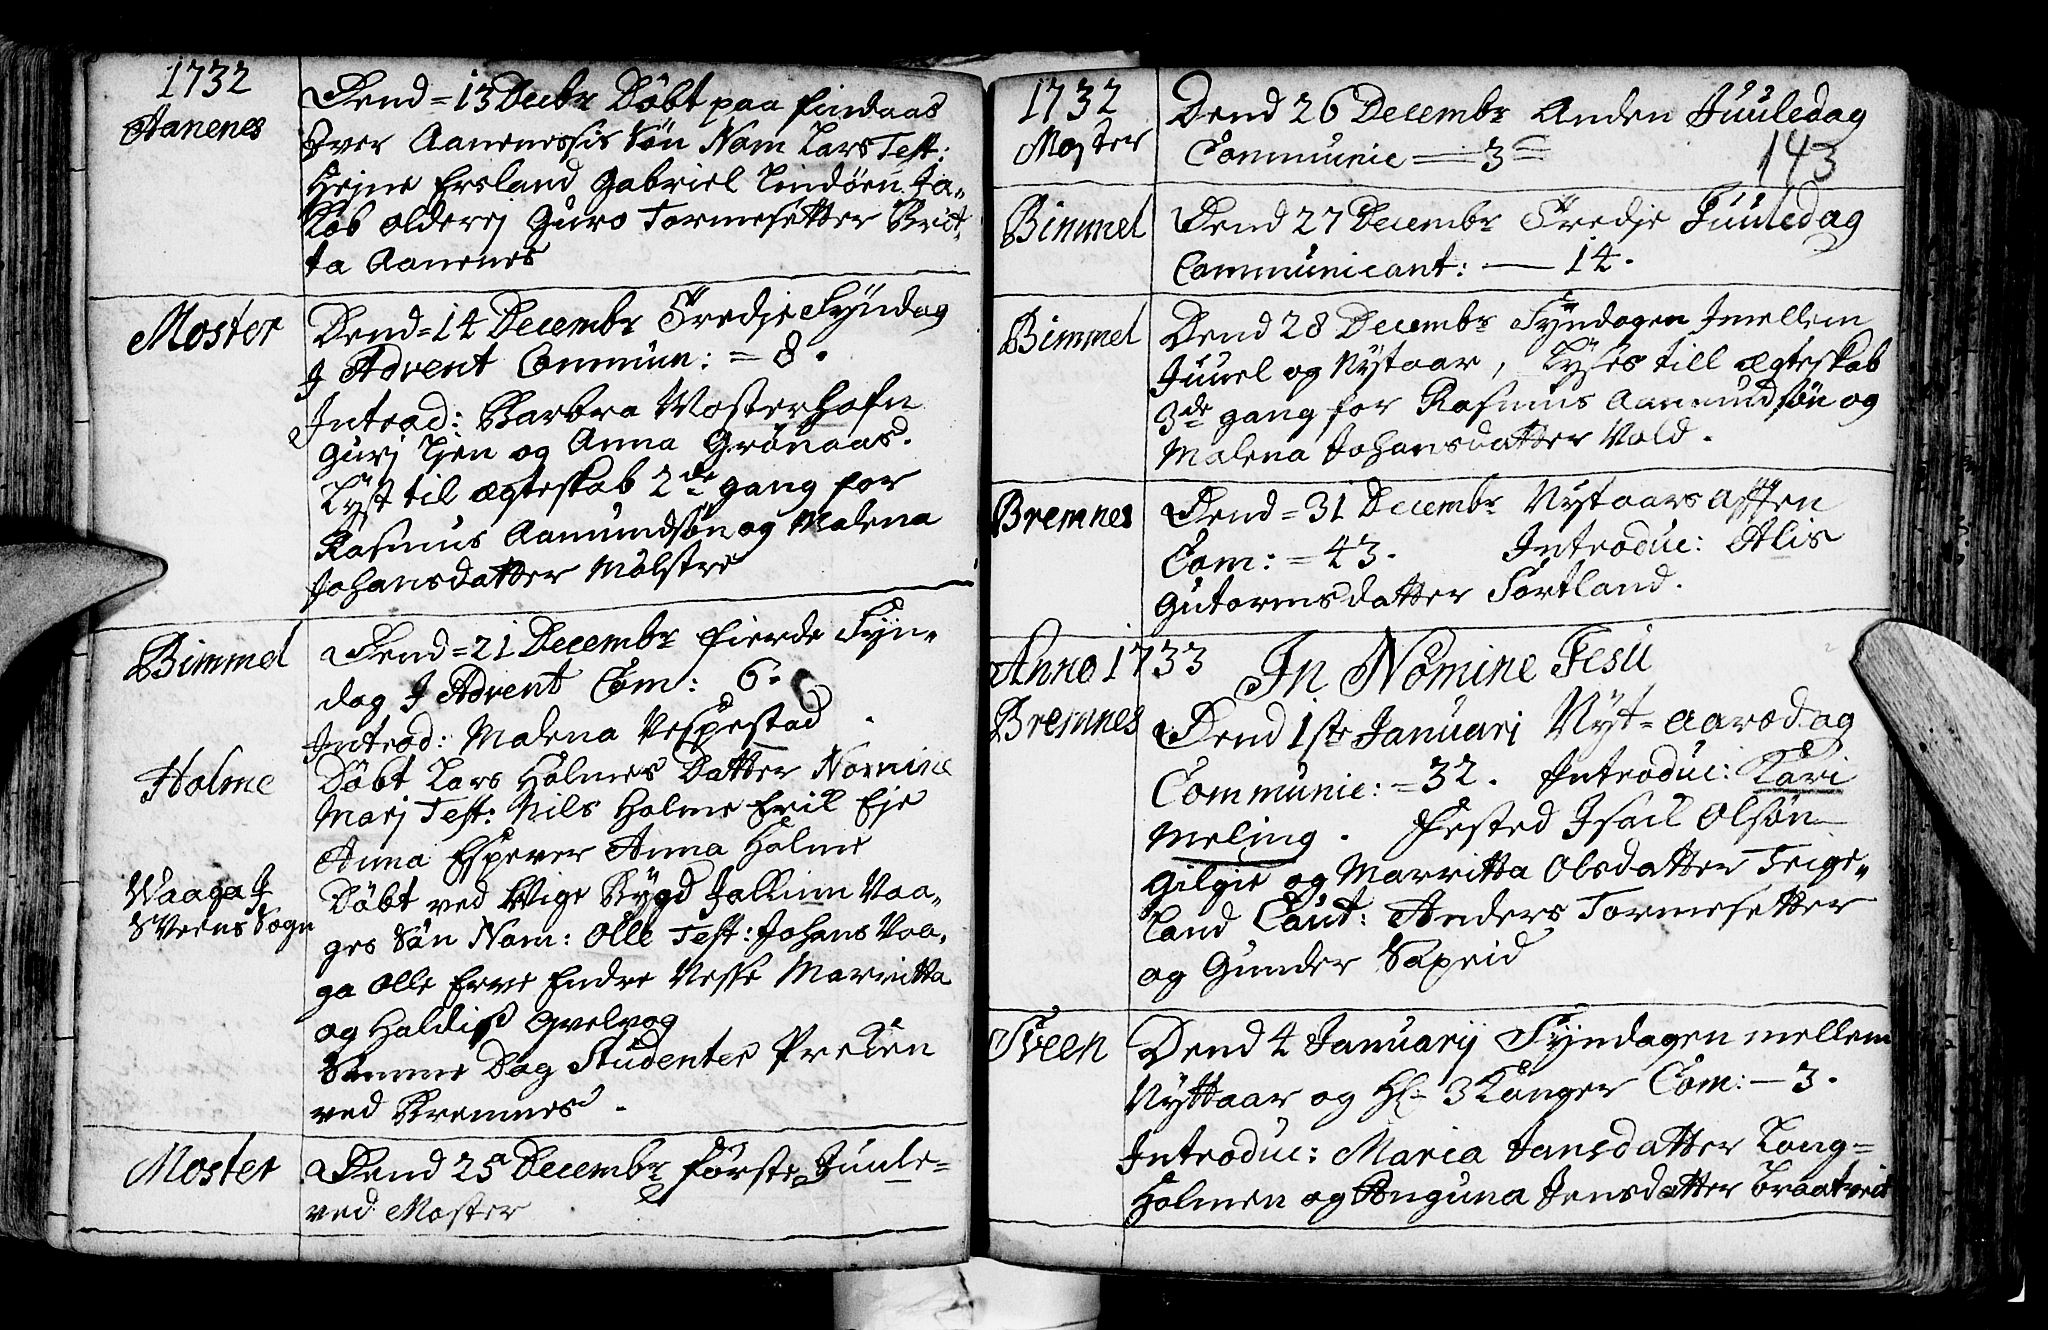 1732
Aanenes
Dend = 13 Decbr Döbt paa Findaas
Iver Aanenessis Sön Nom Lars Test:
Hejne Ersland Gabriel Lindöen Ja=
kob Olderej Guro Tormesetter Brit=
ta Aanenes
Moster
Dend = 14 Decembr Tredje Syndag
J Advent Commun: = 8.
Introd: Barbra Mosterhafn
Gurj Lien og Anna Grönaas.
Lyst til ægteskab 2de gang for
Rasmus Aamundsön og Malena
Johansdatter Mölstre
Bimmel
Dend = 21 Decembr fierde Syn=
dag J Advent Com: 6.
Introd: Malena Vespestad.
Holme
Döbt Lars Holmes Datter Nomine
Marj Test: Nils Holme Eril Eje
Anna Espever Anna Holme
Waaga J
Sveens Sogn
Döbt ved Wige Bygd Jallinn Vaa=
ges Sön Nom: Olle Test: Johans Vaa=
ga Olle Erve Endre Nesse Marritta
og Haldis Qvelvog
Samme Dag Studenter Preken
ved Bremnes.
Moster
Dend 25 Decembr förste Juule=
ved Moster
1732
Moster
Dend 26 Decembr Anden Juuledag
Communic = 3 =
143
Bimmel
Dend 27 Decembr Tredje Juuledag
Communicant: — 14.
Bimmel
Dend 28 Decembr Syndagen Jmellem
Juuel og Nytaar, Lyses till ægteskab
3de gang for Rasmus Aamundsön og
Malena Johansdatter Vold.
Bremnes
Dend = 31 Decembr Nytaars Afften
Com: = 43. Introduc: Alis
Gutormsdatter Törtland.
Anno 1733 In Nomine Jesu
Bremnes
Dend 1ste Januarj Nyt=aarsdag
Communic: = 32. Introduc: Kari
Meling. Fested Isail Olsön
Gilgie og Marritta Olsdatter Teige=
land Caut: Anders Tormesetter
og Gunder Sapeid
Sveen
Dend 4 Januarij Syndagen mellem
Nyttaar og Hl: 3 Konger Com: — 3.
Introduc: Maria Jansdatter Long=
Holmen og Anguna Jensdatter Braatveit